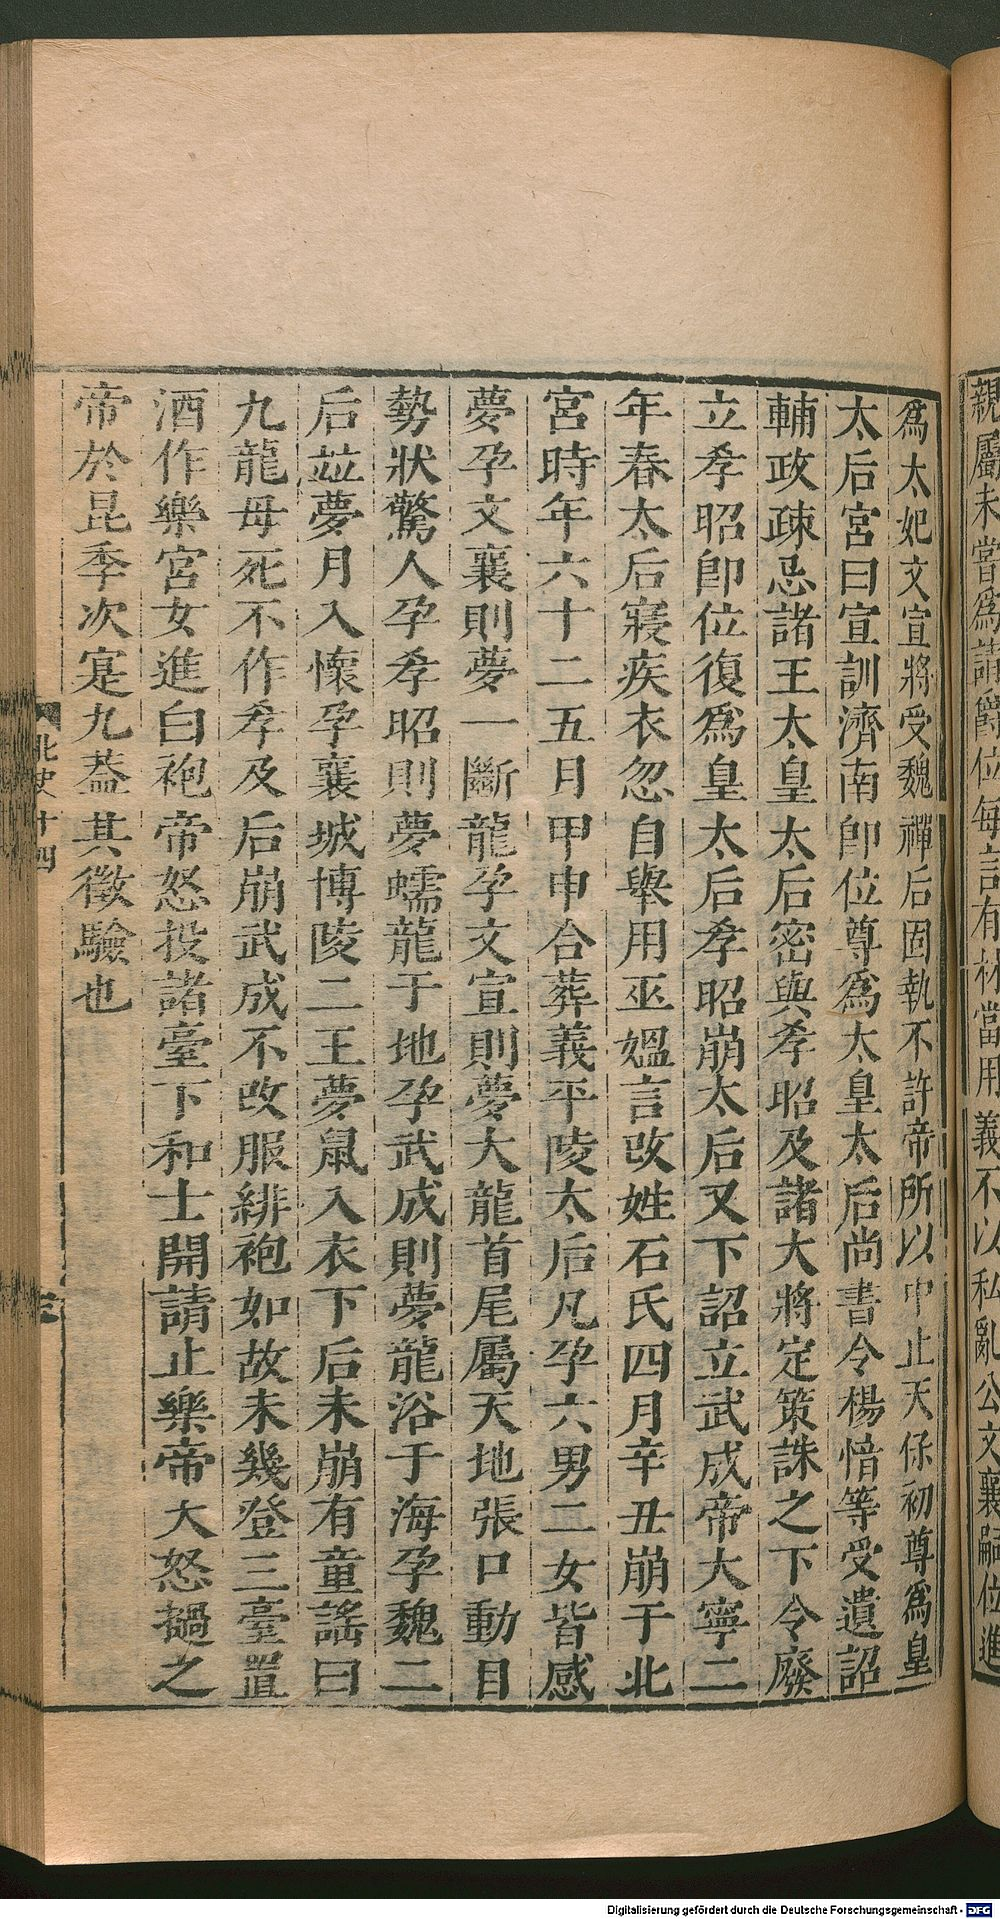 親屬未嘗爲請爵位每言有材當用義不以私亂公文襄嗣位進
爲太妃文宣將受魏禪后固執不許帝所以中止天保初尊爲皇
太后宮曰宣訓濟南卽位尊爲太皇太后尚書令楊愔等受遺詔
輔政疎忌諸王太皇太后密與孝昭及諸大將定策誅之下令廢
立孝昭卽位復爲皇太后孝昭崩太后又下詔立武成帝大寧二
年春太后寢疾衣忽自舉用巫媼言改姓石氏四月辛丑崩于北
宮時年六十二五月甲申合葬義平陵太后凡孕六男二女皆感
夢孕文襄則夢一斷龍孕文宣則夢大龍首尾屬天地張口動目
勢狀驚人孕孝昭則夢蠕龍于地孕武成則夢龍浴于海孕魏二
后竝夢月入懷孕襄城博陵二王夢鼠入衣下后未崩有童謠曰
九龍母死不作孝及后崩武成不改服緋袍如故未幾登三臺置
酒作樂宮女進白袍帝怒投諸臺下和士開請止樂帝大怒撾之
帝於昆季次寔九蓋其徵驗也
北史十四
Digitalisierung gefördert durch die Deutsche Forschungsgemeinschaft - DFG